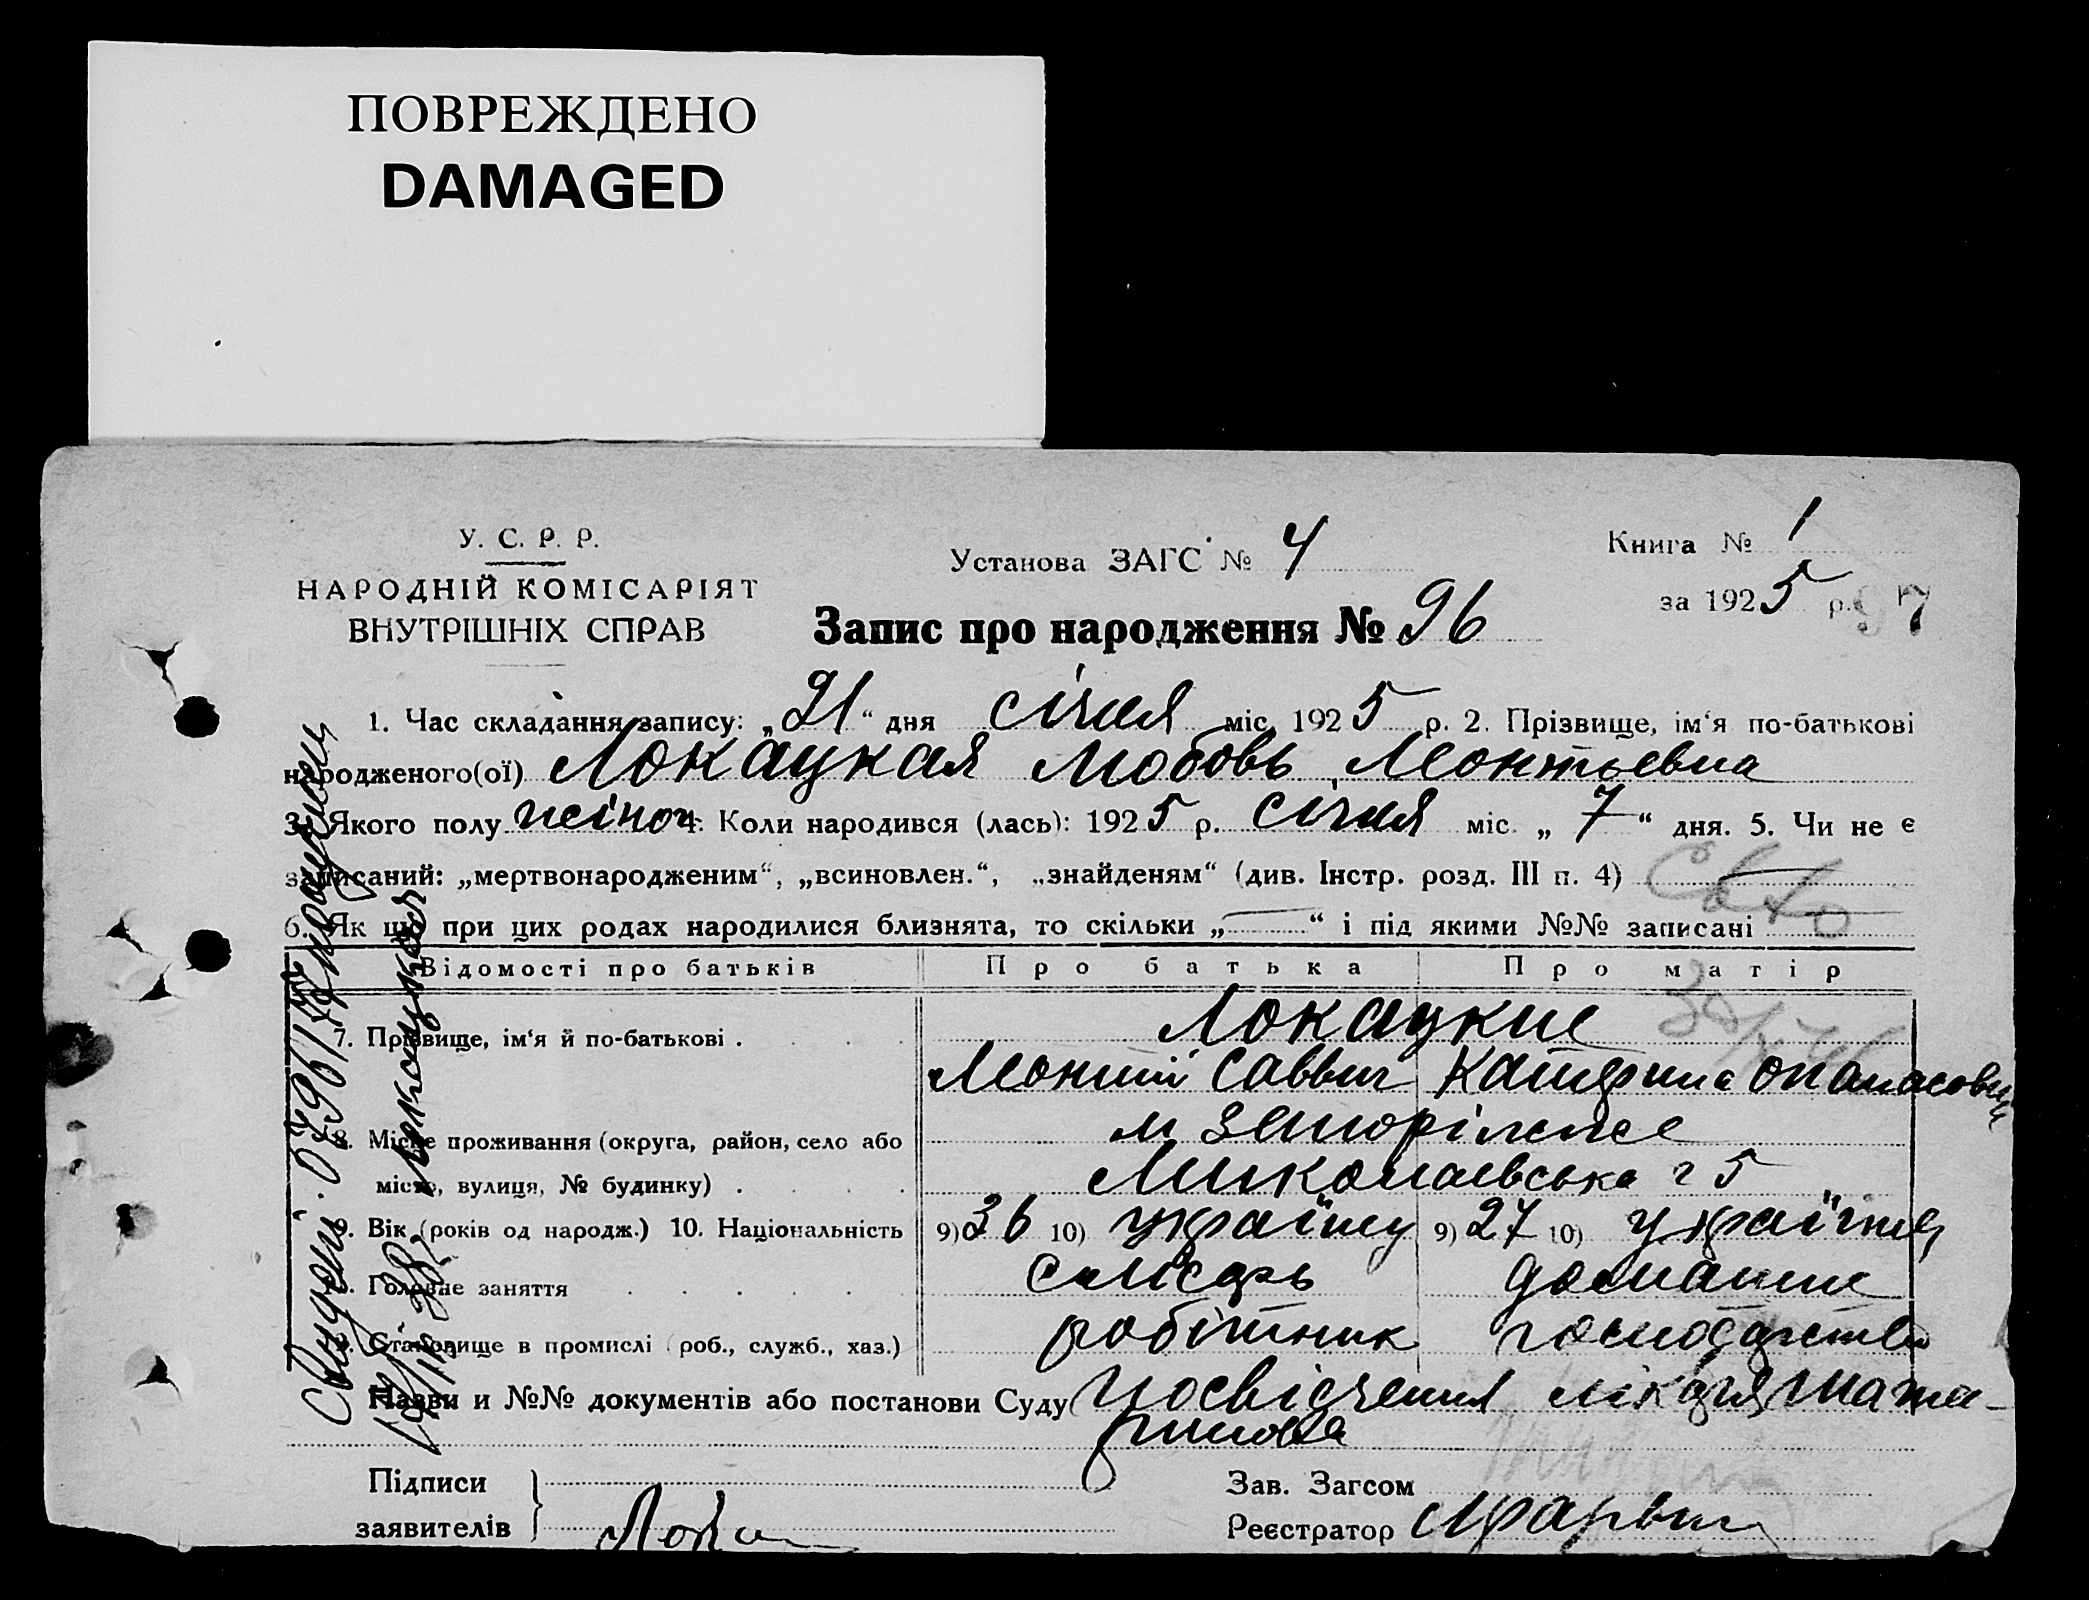 ПОВРЕЖДЕНО
DAMAGED
У. С. Р. Р.
НАРОДНІЙ КОМІСАРІЯТ
ВНУТРІШНІХ СПРАВ
Установа ЗАГС № 4
Книга № 1
за 1925 р. 97
Запис про народження № 96
1. Час складання запису: „21“ дня січня міс. 1925 р. 2. Прізвище, ім‘я по-батькові
народженого(ої) Локацкая Любовь Леонтьевна
3. Якого полу жіноч 4. Коли народився (лась): 1925 р. січня міс. „7“ дня. 5. Чи не є
записаний: „мертвонародженим“, „всиновлен.“, „знайденям“ (див. Інстр. розд. III п. 4)
6. Як що при цих родах народилися близнята, то скільки „—“ і під якими №№ записані
Відомості про батьків Про батька Про матір
7. Прізвище, ім‘я й по-батькові . Локацкие
Леонтій Саввич Катерина Опанасовна
8. Місце проживання (округа, район, село або м Запоріжже
місто, вулиця, № будинку) . Миколаевська 25
9. Вік (років од народж.) 10. Національність 9) 36 10) україну 9) 27 10) україінц
Головне заняття слюсарь домашне
Становище в промислі (роб., служб., хаз.) робітник господарство
Назви и №№ документів або постанови Суду Посвідчення лікаря
Підписи
заявителів
Зав. Загсом
Реєстратор
Локацкая